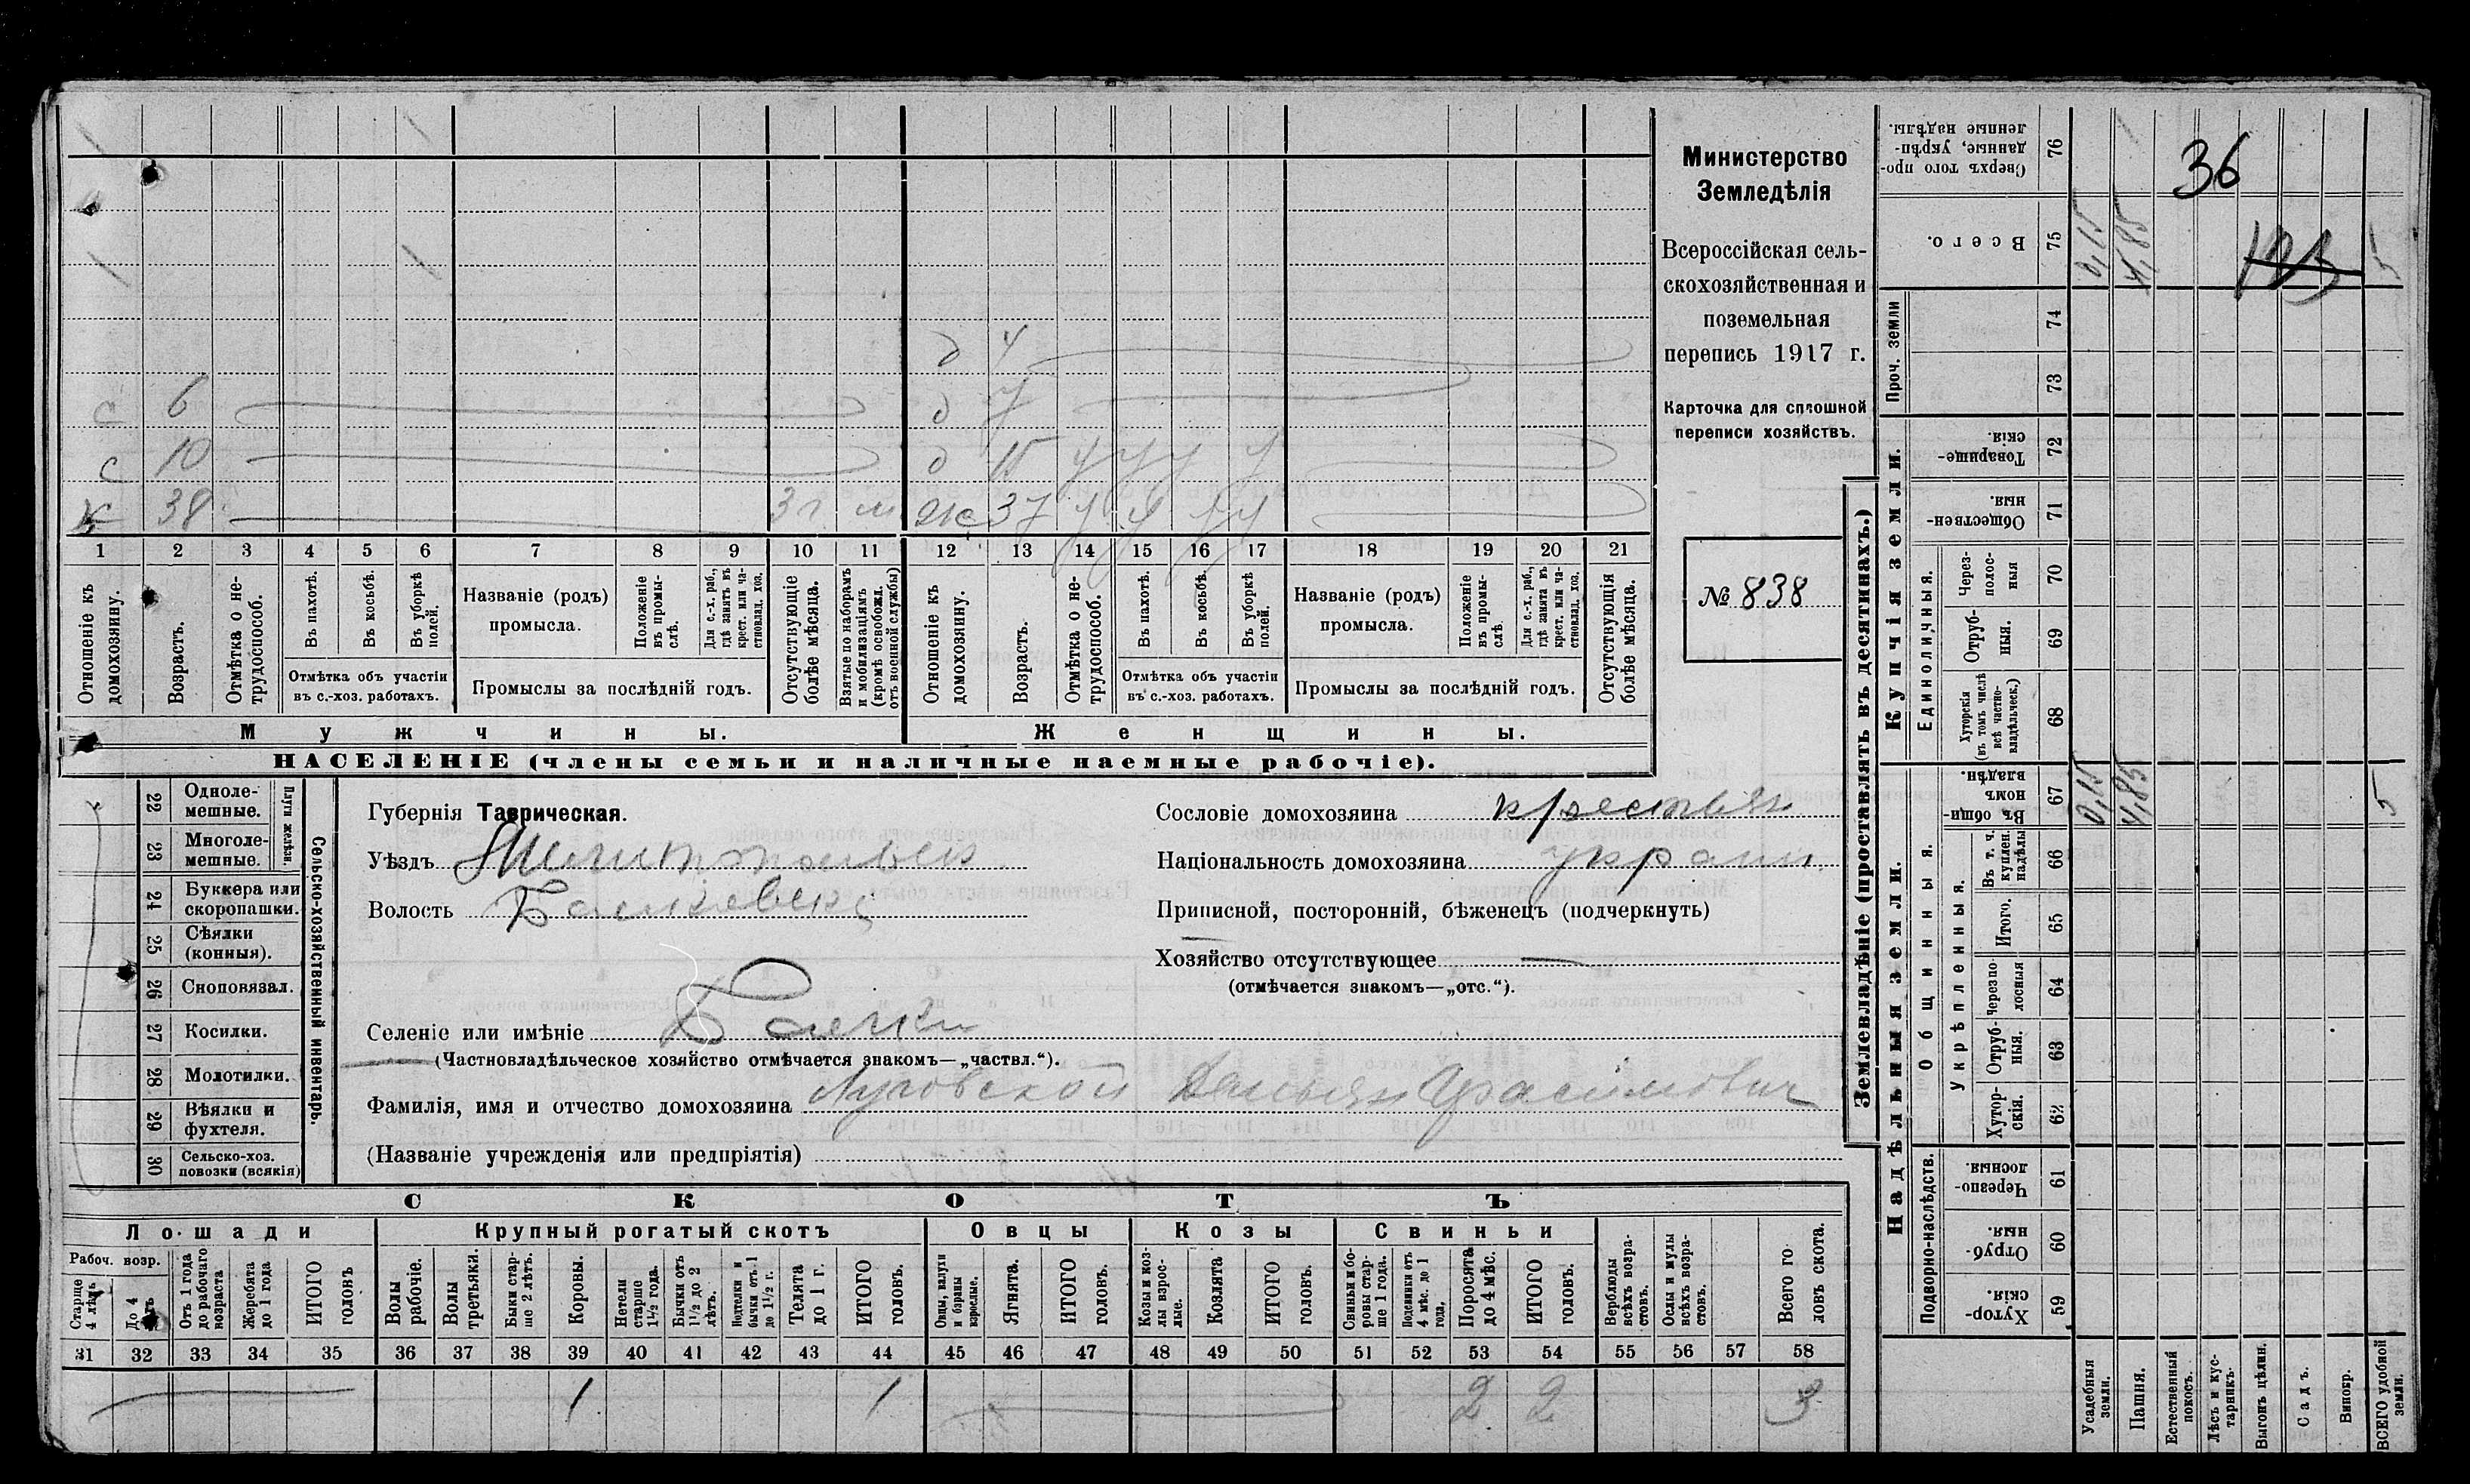 Министерство
Земледѣлія
Всероссійская сель-
скохозяйственная и
поземельная
перепись 1917 г.
Карточка для сплошной
переписи хозяйствъ.
№ 838
36
д 4
с 6 д 7
с 10 д 15
38 3 г. м ж 37
1 2 3 4 5 6 7 8 9 10 11 12 13 14 15 16 17 18 19 20 21
Отношеніе къ домохозяину.
Возрастъ.
Отмѣтка о не-трудоспособ.
Въ пахотѣ.
Въ косьбѣ.
Въ уборкѣ полей.
Отмѣтка объ участіи
въ с.-хоз. работахъ.
Названіе (родъ)
промысла.
Положеніе въ промы-слѣ.
Для с.-х. раб., гдѣ занятъ въ крест. или ча-стновлад. хоз.
Промыслы за послѣдній годъ.
Отсутствующіе болѣе мѣсяца.
Взятые по наборамъ и мобилизаціямъ (кромѣ освобожд. отъ военной службы)
Отношеніе къ домохозяину.
Возрастъ.
Отмѣтка о не-трудоспособ.
Въ пахотѣ.
Въ косьбѣ.
Въ уборкѣ полей.
Отмѣтка объ участіи
въ с.-хоз. работахъ.
Названіе (родъ)
промысла.
Положеніе въ промы-слѣ
Для с.-х. раб., гдѣ занята въ крест. или ча-стновлад. хоз.
Промыслы за послѣдній годъ.
Отсутствующія болѣе мѣсяца.
Мужчины.
Женщины.
НАСЕЛЕНІЕ (члены семьи и наличные наемные рабочіе).
22 Одноле-мешные.
23 Многоле-мешные.
Плуги желѣзн.
24 Буккера или скоропашки.
25 Сѣялки (конныя).
26 Сноповязал.
27 Косилки.
28 Молотилки.
29 Вѣялки и фухтеля.
30 Сельско-хоз. повозки (всякія)
Сельско-хозяйственный инвентарь.
Губернія Таврическая.
Уѣздъ Мелитопольск
Волость Балковск
Селеніе или имѣніе Балки
(Частновладѣльческое хозяйство отмѣчается знакомъ—„частвл.“).
Фамилія, имя и отчество домохозяина Луговской Демьян Герасимович
(Названіе учрежденія или предпріятія)
Сословіе домохозяина крестьян
Національность домохозяина украин.
Приписной, посторонній, бѣженецъ (подчеркнуть)
Хозяйство отсутствующее
(отмѣчается знакомъ—„отс.“).
СКОТЪ
Лошади
Крупный рогатый скотъ
Овцы
Козы
Свиньи
Рабоч. возр.
Старше 4 лѣтъ
До 4 лѣтъ
Отъ 1 года до рабочаго возраста
Жеребята до 1 года
ИТОГО головъ
Волы рабочіе.
Волы третьяки.
Быки стар-ше 2 лѣтъ.
Коровы.
Нетели старше 1½ года.
Бычки отъ 1½ до 2 лѣтъ.
Подтелки и бычки отъ 1 до 1½ г.
Телята до 1 г.
ИТОГО головъ.
Овцы, валухи и бараны взрослые.
Ягнята.
ИТОГО головъ.
Козы и коз-лы взрос-лые.
Козлята
ИТОГО головъ.
Свиньи и бо-ровы стар-ше 1 года.
Подсвинки отъ 4 мѣс. до 1 года,
Поросята до 4 мѣс.
ИТОГО головъ.
Верблюды всѣхъ возра-стовъ.
Ослы и мулы всѣхъ возра-стовъ.
Всего го ловъ скота.
31 32 33 34 35 36 37 38 39 40 41 42 43 44 45 46 47 48 49 50 51 52 53 54 55 56 57 58
1 1 2 2 3
Землевладѣніе (проставлять въ десятинахъ.)
Сверхъ того про-данные, укрѣп-ленные надѣлы. 76
Всего. 75 0,15 4,85 5
Проч. земли 74 73
Купчія земли.
Товарище-скія. 72
Обществен-ныя. 71
Единоличныя.
Через-полос-ныя 70
Отруб-ныя. 69
Хуторскія (въ томъ числѣ всѣ частно-владѣльческ.) 68
Надѣльныя земли.
Общинныя.
Въ общин-номъ владѣн. 67 0,15 4,85 5
Укрѣпленныя.
Въ т. ч. куплен. надѣлы 66
Итого. 65
Черезпо-лосныя 64
Отруб-ныя. 63
Хутор-скія. 62
Подворно-наслѣдств.
Черезпо-лосныя. 61
Отруб-ныя. 60
Хутор-скія. 59
Усадебныя земли.
Пашня.
Естественный покосъ.
Лѣсъ и кус-тарникъ.
Выгонъ цѣлин.
Садъ.
Виногр.
ВСЕГО удобной земли.